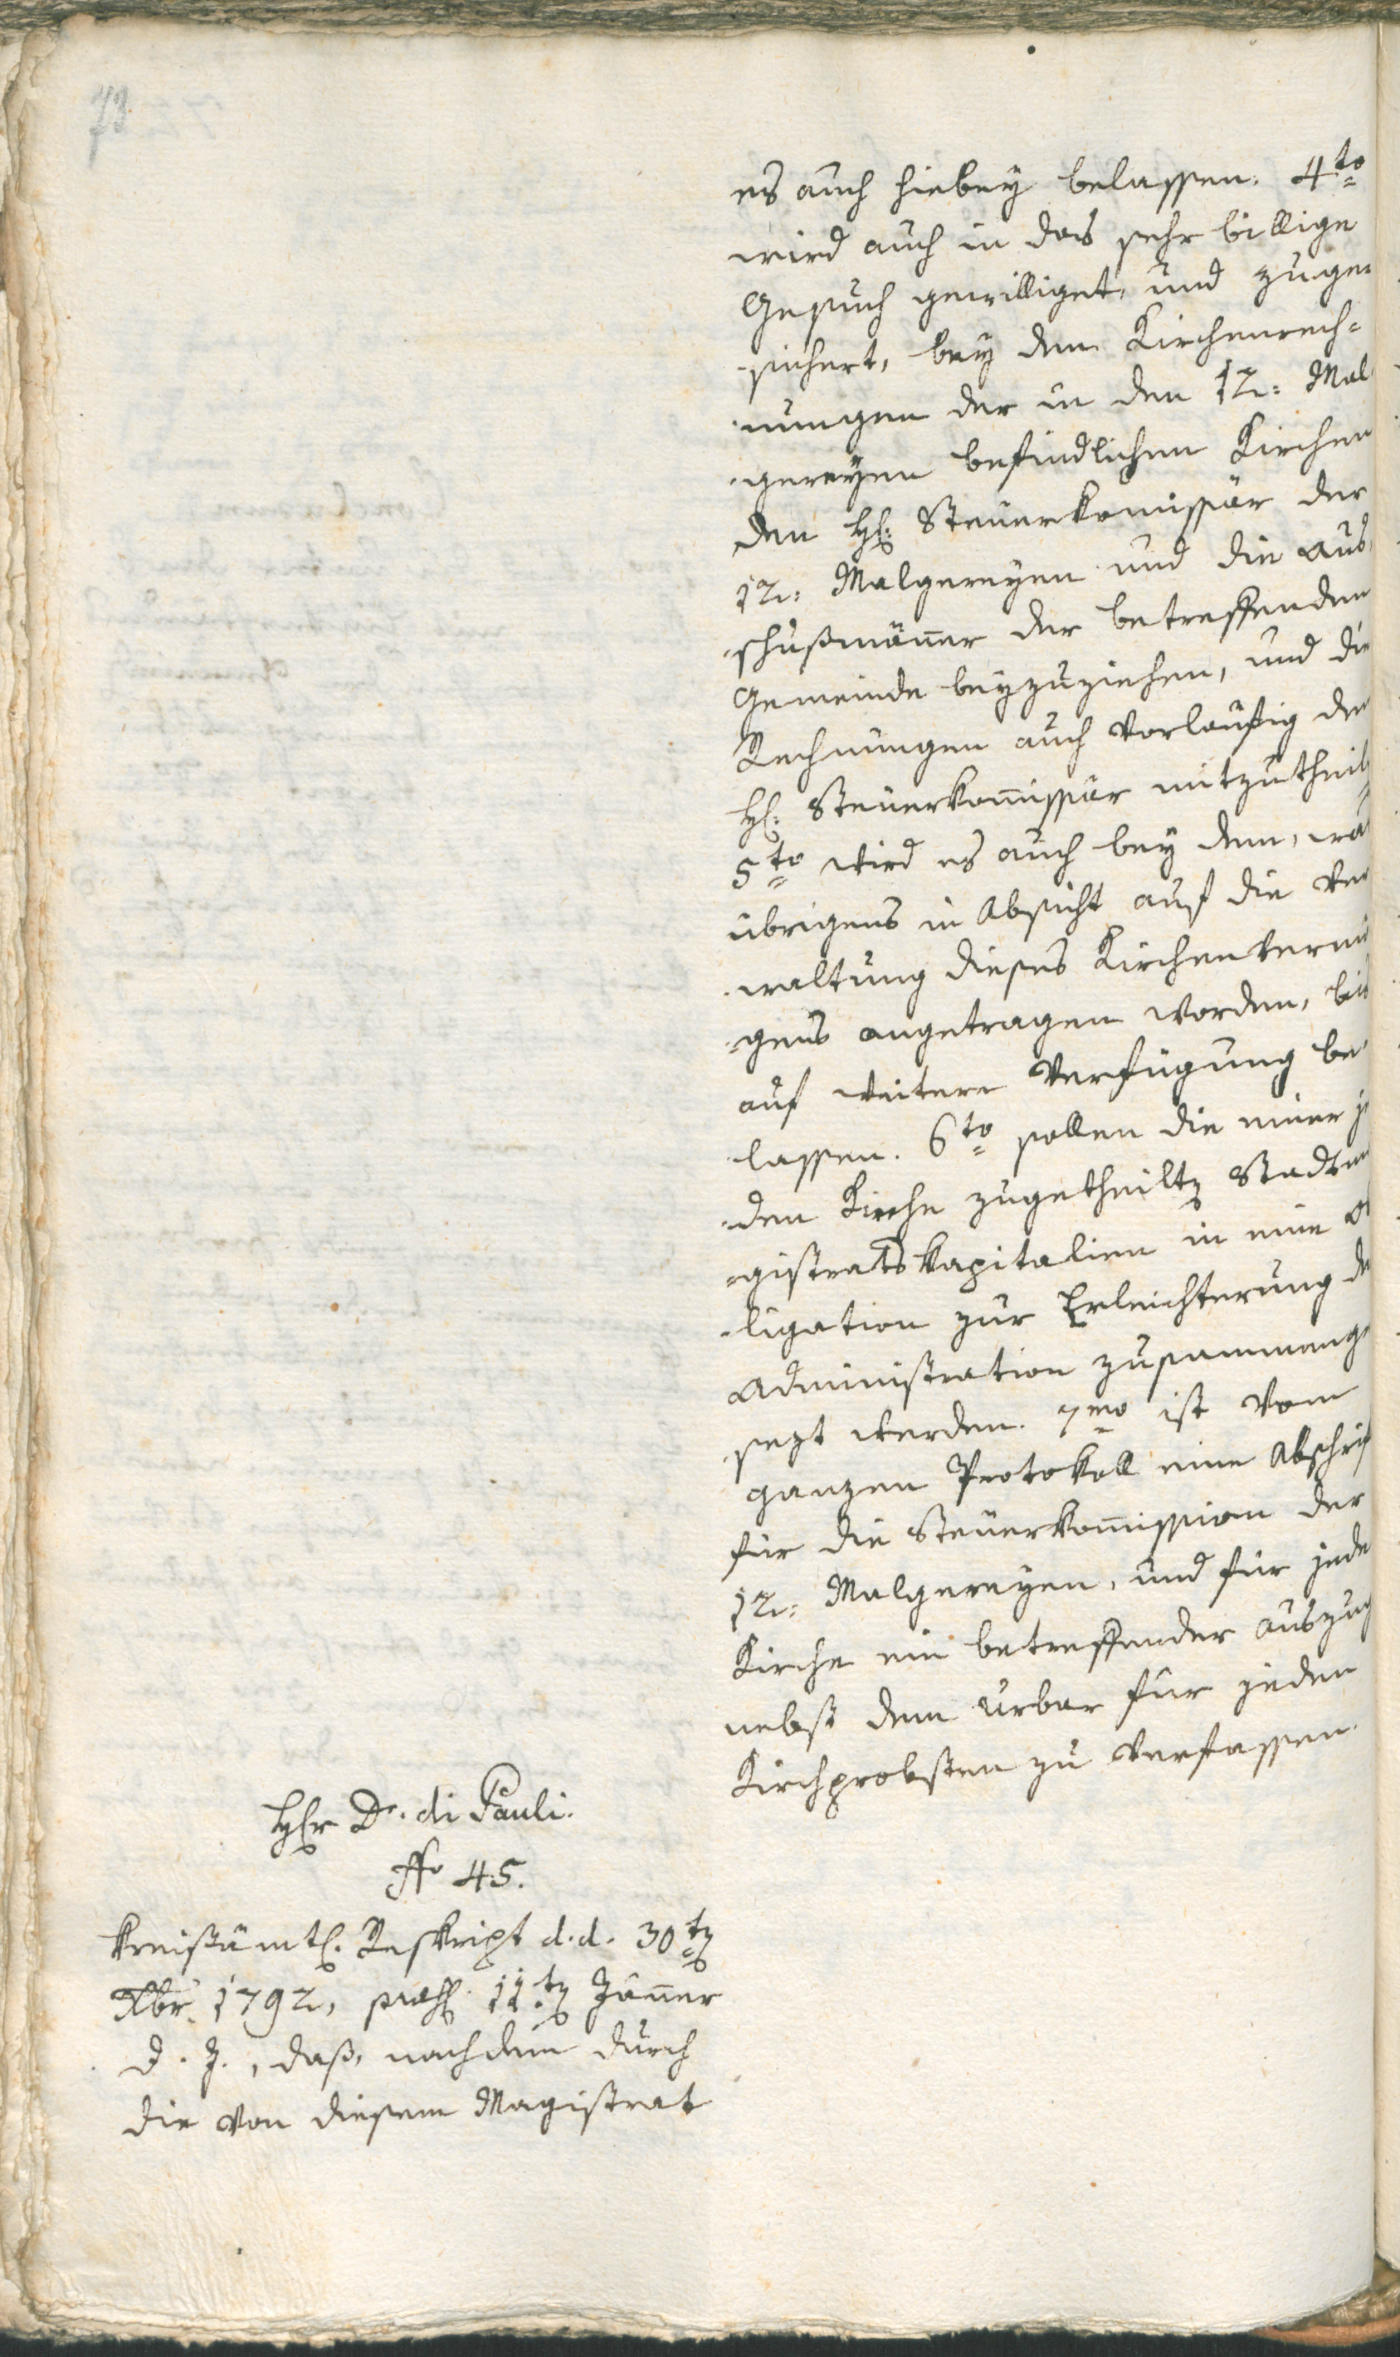 73
es auch hiebey belassen. 4to
wird auch in das sehr billige
Gesuch gewilliget, und zuge-
sichert, bey den Kirchenrech=
nungen der in den 12: Mal
gereyen befindlichen Kirchen
den H: Steuerkomissär der
12: Malgereyen und die Aus
schußmäner der betreffenden
Gemeinde beyzuziehen, und die
Rechnungen auch vorläufig dem
H: Steuerkomissär mitzutheil
5to wird es auch bey dem, wa
übrigens in Absicht auf die Ver
waltung dieses Kirchenvermö
gens angetragen worden, bis
auf weitere Verfügung be
lassen. 6to sollen die einer je
den Kirche zugetheilten Stadtma
gistratskapitalien in eine Ob
ligation zur Erleichterung de
Administration zusammenge
sezt werden. 7mo ist vom
ganzen Protokoll eine Abschrif
für die Steuerkomission der
12: Malgereyen, und für jede
Kirche ein betreffender Auszug
nebst dem Urbar für jeden
Kirchprobsten zu verfassen.
Hr Dr. di Pauli.
No 45.
Kreisämtl. Reskript d.d. 30ten
Xbr. 1792, præs. 11ten Jäner
d. J., daß, nachdem durch
die von diesem Magistrat